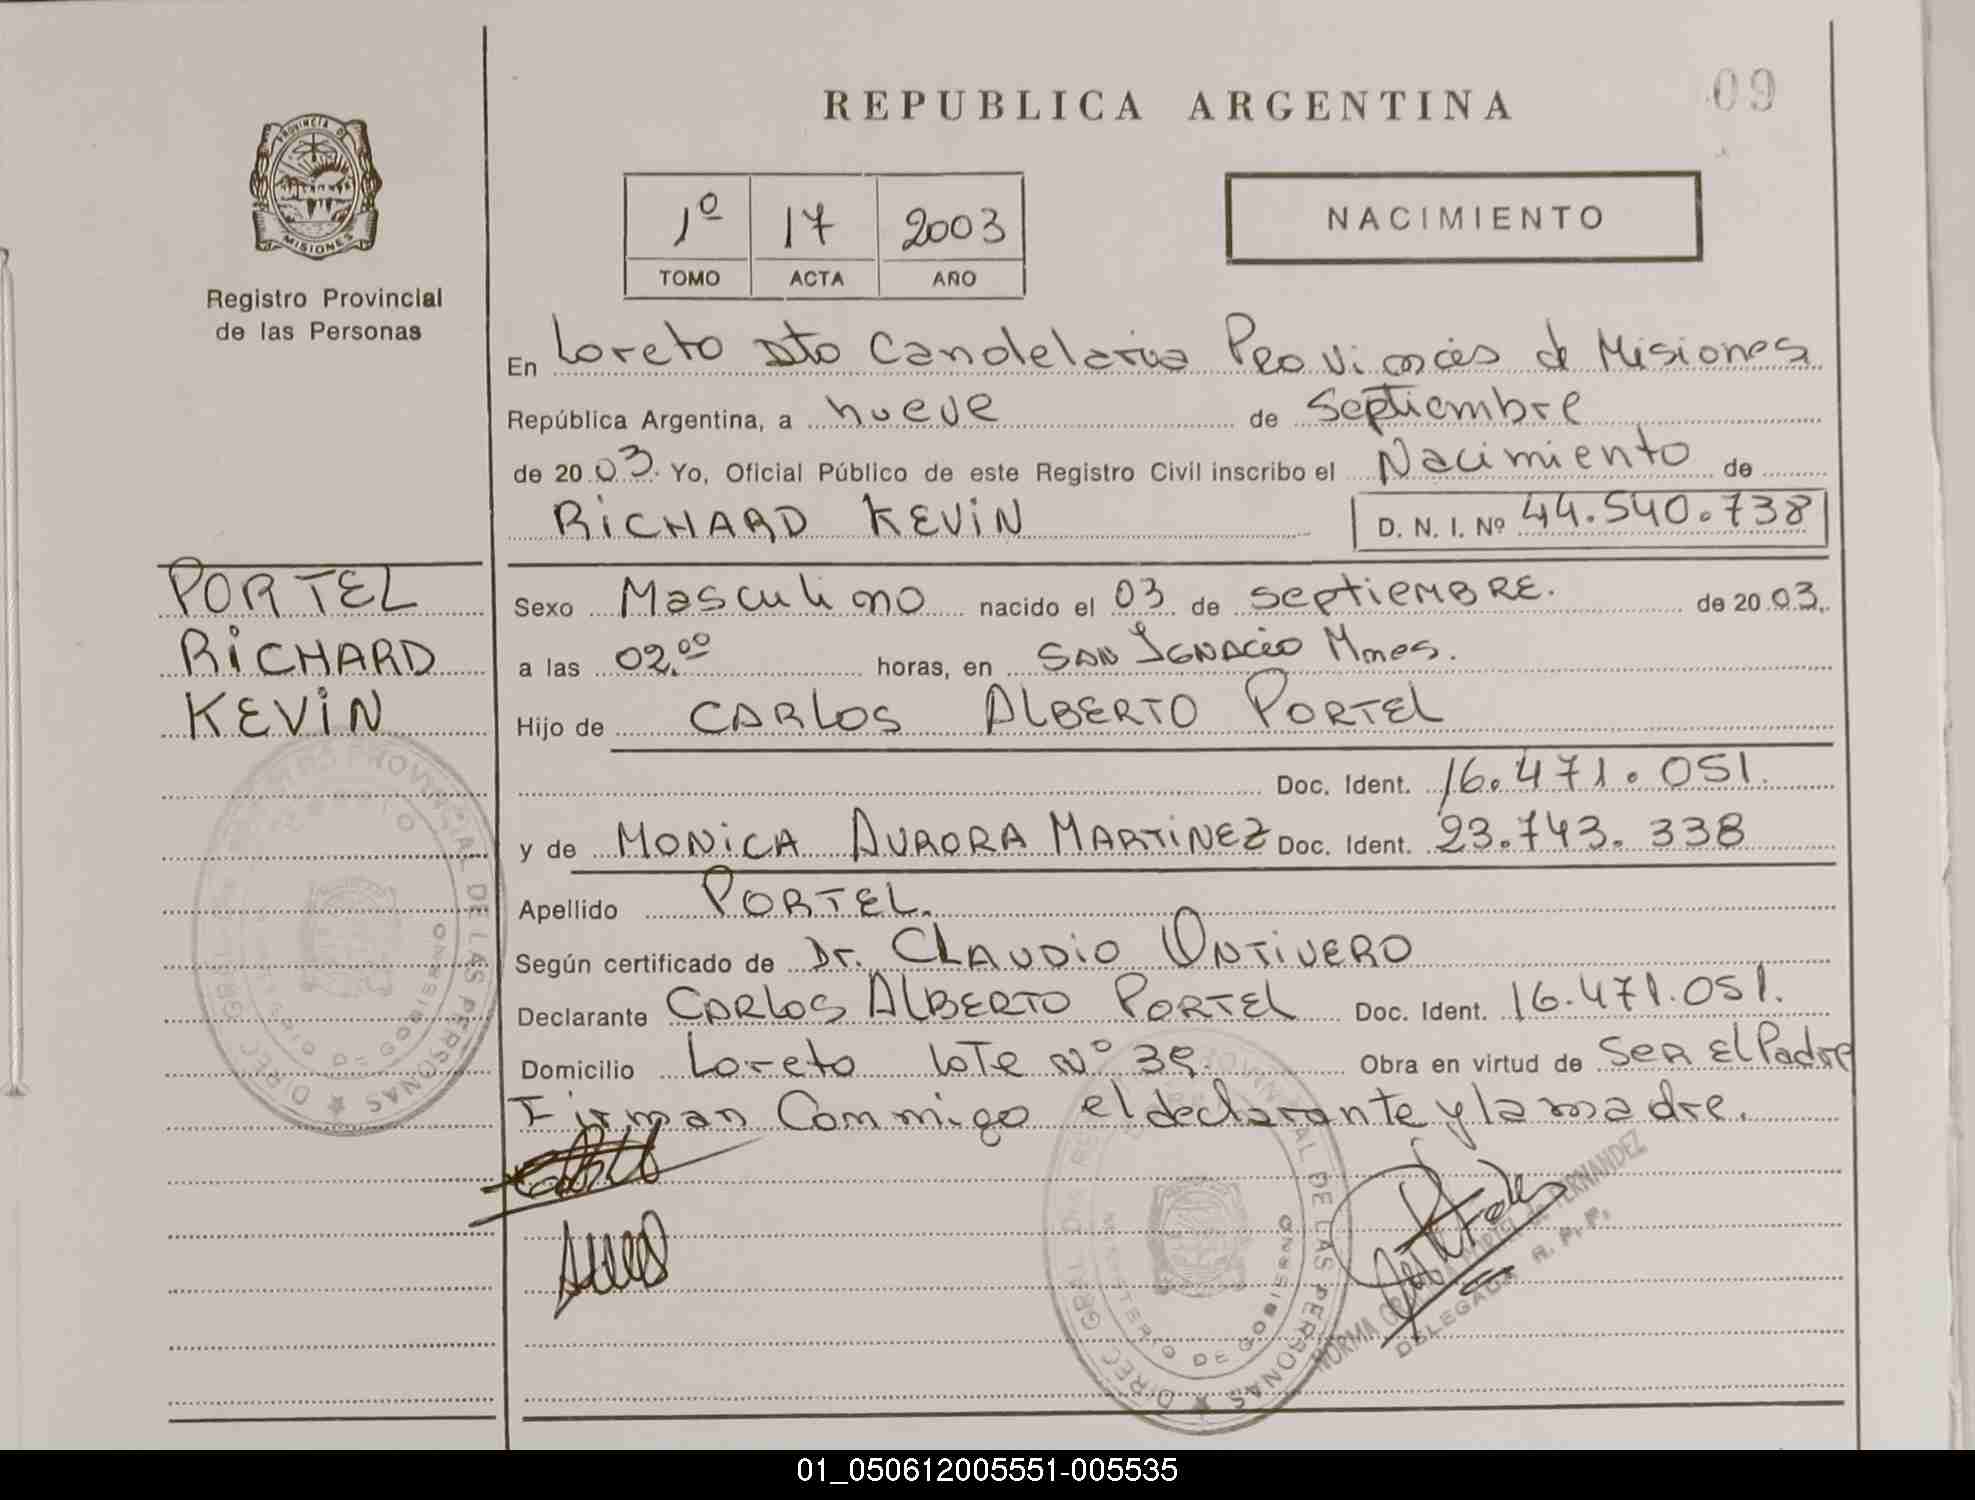 REPUBLICA ARGENTINA
09
PROVINCIA DE
MISIONES
Registro Provincial
de las Personas
1º 17 2003
TOMO ACTA AÑO
NACIMIENTO
En Loreto Dto Candelaria Provincia de Misiones
República Argentina, a nueve de Septiembre
de 20 03. Yo, Oficial Público de este Registro Civil inscribo el Nacimiento de
RICHARD KEVIN D. N. I. Nº 44.540.738
PORTEL
RICHARD
KEVIN
Sexo Masculino nacido el 03 de septiEMBRE. de 20 03.
a las 02.00 horas, en SAN IGNACIO Mnes.
Hijo de CARLOS ALBERTO PORTEL
Doc. Ident. 16.471.051.
y de MONICA AURORA MARTINEZ Doc. Ident. 23.743.338
Apellido PORTEL.
Según certificado de Dr. CLAUDIO ONTIVERO
Declarante CARLOS ALBERTO PORTEL Doc. Ident. 16.471.051.
Domicilio Loreto loTe Nº 39. Obra en virtud de SER El Padre
Firman Conmigo el declarante y la madre.
PROVINCIAL DE LAS PERSONAS ★ DIREC GRAL
LORETO
MINISTERIO DE GOBIERNO
DIREC GRAL DEL PROVINCIAL DE LAS PERSONAS ★
MINISTERIO DE GOBIERNO
NORMA DE FERNANDEZ
DELEGADA R. P. P.
01_050612005551-005535